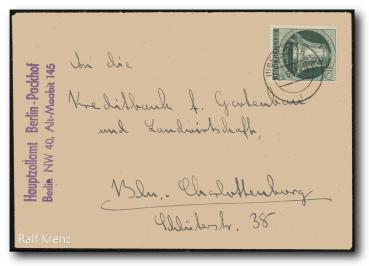 Hauptzollamt Berlin-Packhof
Berlin NW 40, Alt-Moabit 145
An die
Kreditbank f. Gartenbau
und Landwirtschaft,
Bln.-Charlottenburg
Schlüterstr. 38
Ralf Krenz